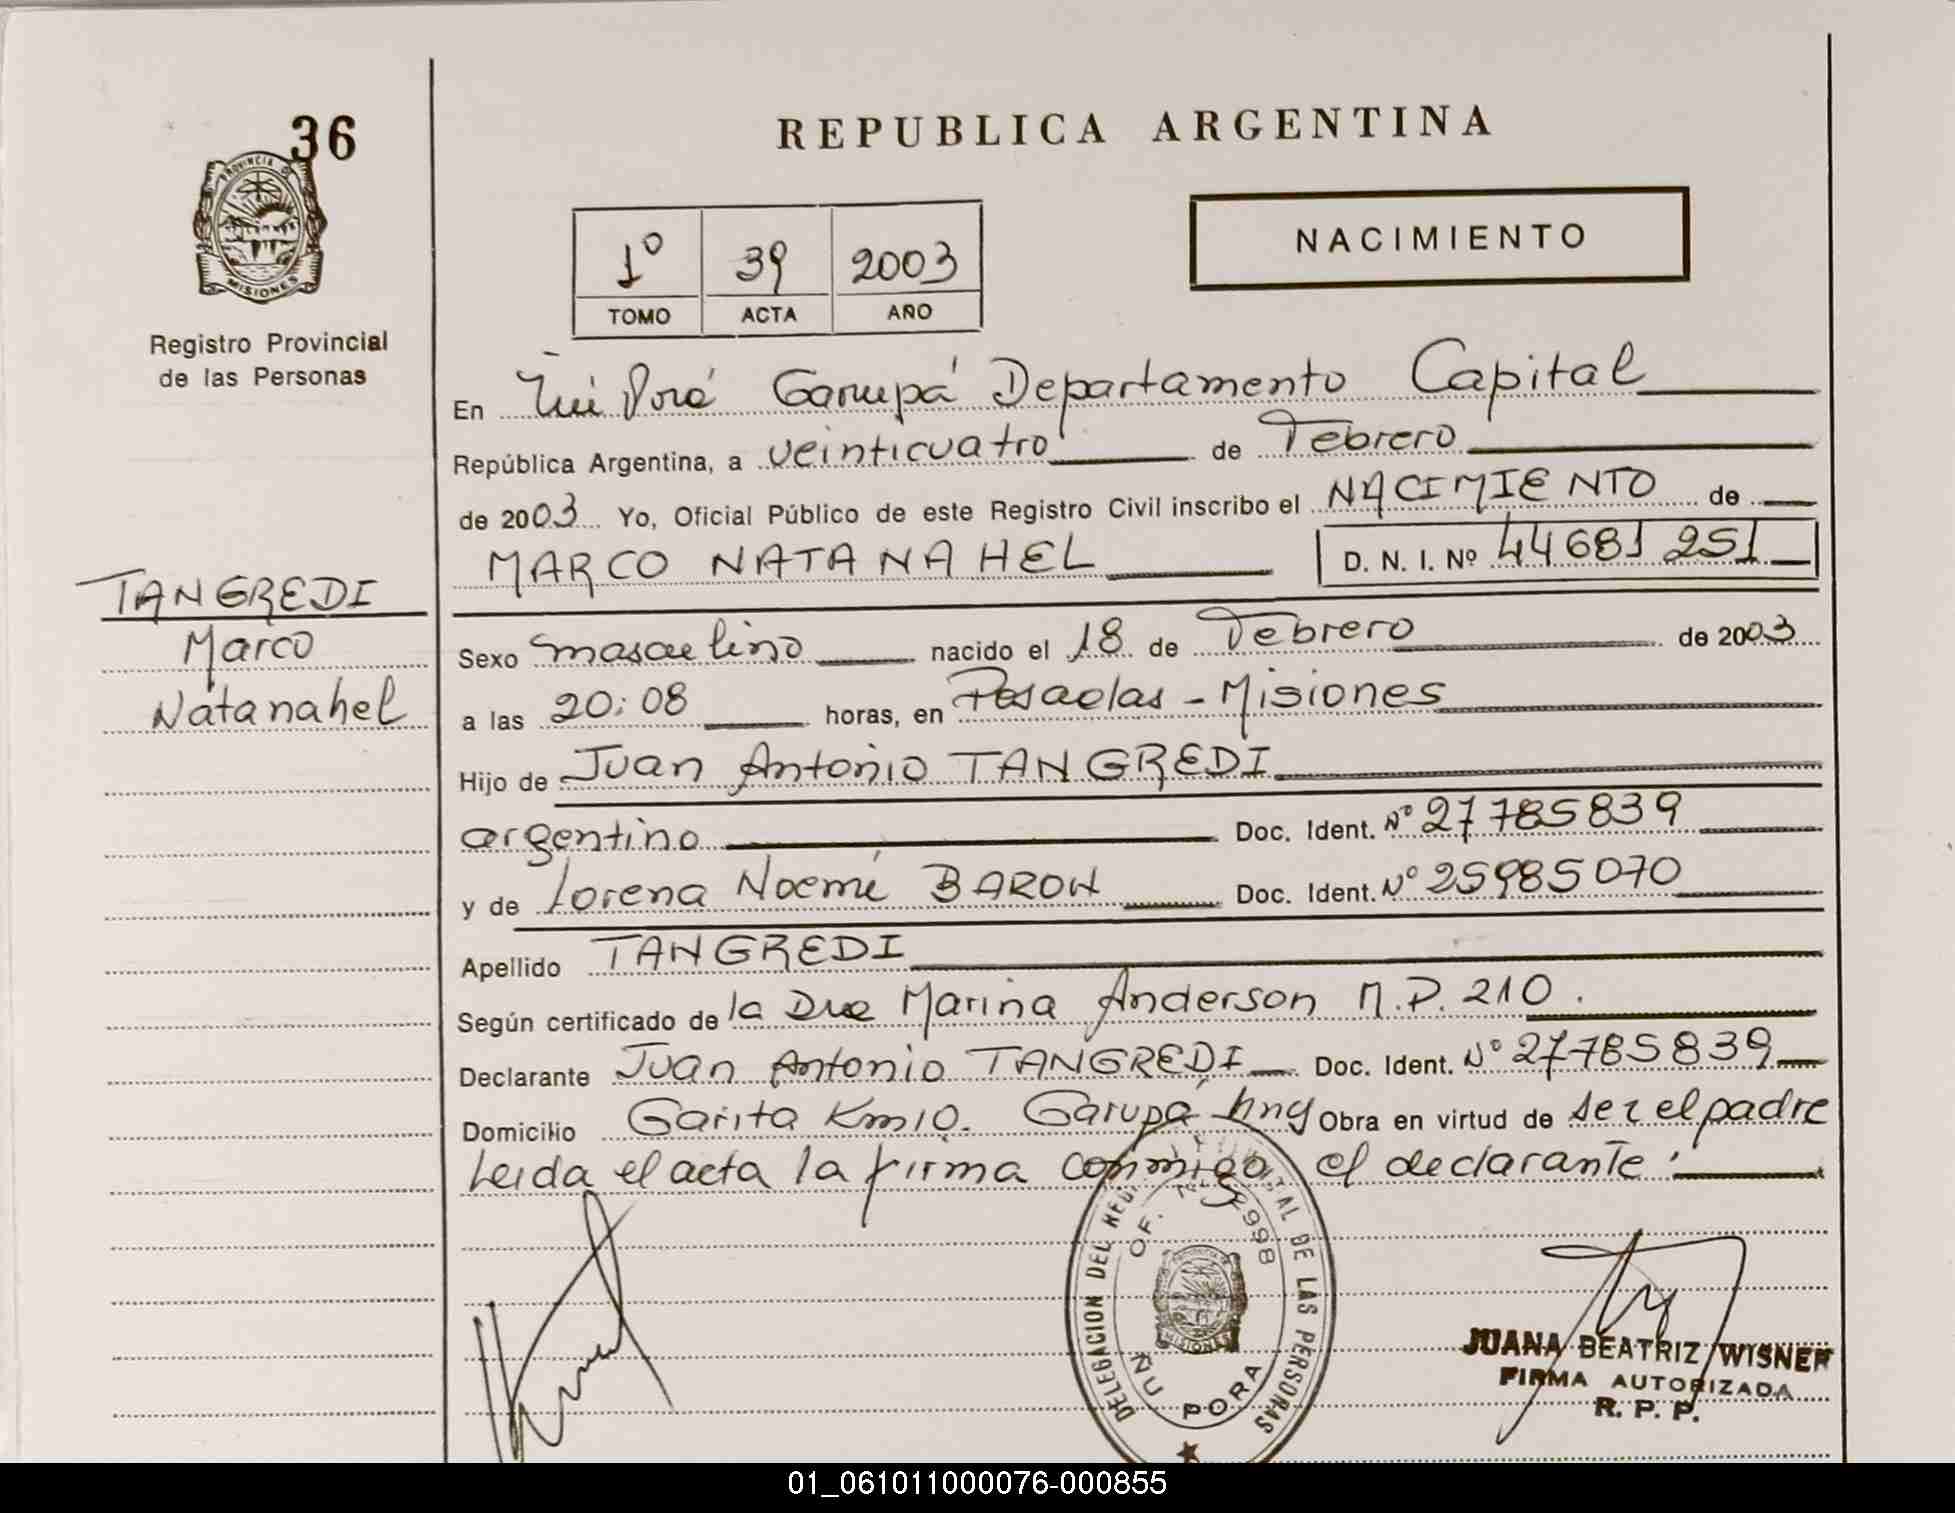 36
PROVINCIA DE
MISIONES
Registro Provincial
de las Personas
REPUBLICA ARGENTINA
1º 39 2003
TOMO ACTA AÑO
NACIMIENTO
En Ñú Porá Garupá Departamento Capital
República Argentina, a veinticuatro de Febrero
de 2003 Yo, Oficial Público de este Registro Civil inscribo el NACIMIENTO de
MARCO NATANAHEL D. N. I. Nº 44681251
TANGREDI
Marco
Natanahel
Sexo masculino nacido el 18 de Febrero de 2003
a las 20:08 horas, en Posadas - Misiones
Hijo de Juan Antonio TANGREDI
argentino Doc. Ident. Nº 27785839
y de Lorena Noemí BARON Doc. Ident. Nº 25985070
Apellido TANGREDI
Según certificado de la Dra Marina Anderson M.P. 210.
Declarante Juan Antonio TANGREDI Doc. Ident. Nº 27785839
Domicilio Garita Km10. Garupá Mnes Obra en virtud de ser el padre
Leida el acta la firma conmigo el declarante.
DELEGACION DEL DE LAS PERSONAS
OF. 2998
MISIONES
ÑU PORA
JUANA BEATRIZ WISNER
FIRMA AUTORIZADA
R. P. P.
01_061011000076-000855